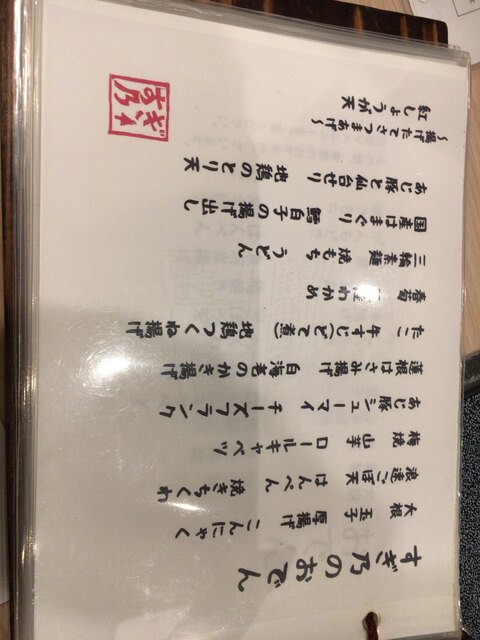 すぎ乃のおでん
大根 玉子 厚揚げ こんにゃく
浪速ごぼ天 はんぺん 焼きちくわ
梅焼 山芋 ロールキャベツ
あじ豚シューマイ チーズフランク
蓮根はさみ揚げ 白海老のかき揚げ
たこ 牛すじ(どて煮) 地鶏つくね揚げ
春菊 わかめ
三輪素麺 焼もち うどん
国産はまぐり 鱈白子の揚げ出し
あじ豚と仙台せり 地鶏のとり天
〜揚げたてさつまあげ〜
紅しょうが天
すぎ乃